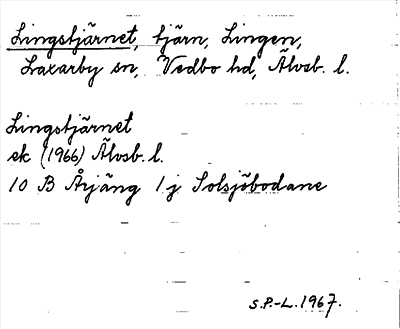 Lingstjärnet, tjärn, Lingen,
Laxarby sn, Vedbo hd, Älvsb. l.
Lingstjärnet
ek (1966) Älvsb. l.
10 B Årjäng 1 j Solsjöbodane
S.P.-L. 1967.